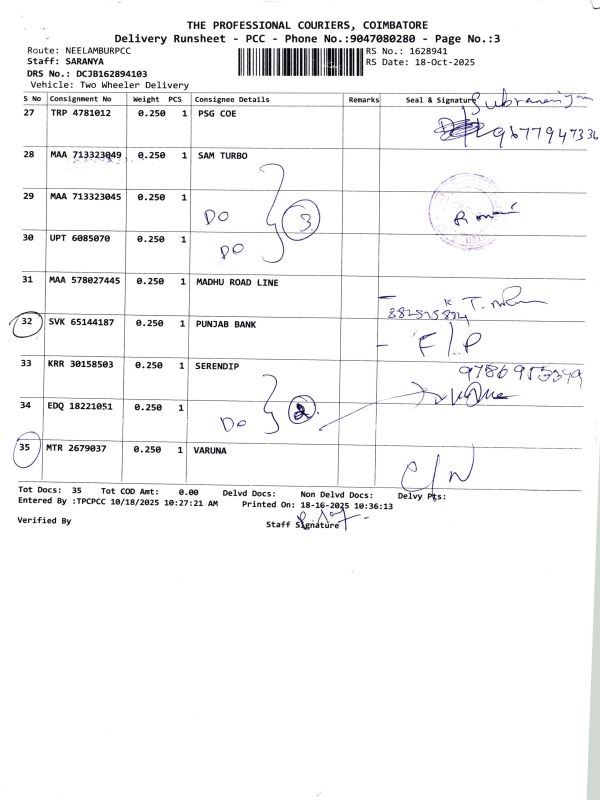 THE PROFESSIONAL COURIERS, COIMBATORE
Delivery Runsheet - PCC - Phone No.:9047080280 - Page No.:3
Route: NEELAMBURPCC RS No.: 1628941
Staff: SARANYA RS Date: 18-Oct-2025
DRS No.: DCJB162894103
Vehicle: Two Wheeler Delivery
S No Consignment No Weight PCS Consignee Details Remarks Seal & Signature
Subramaniyam
27 TRP 4781012 0.250 1 PSG COE
9677947336
28 MAA 713323049 0.250 1 SAM TURBO
29 MAA 713323045 0.250 1
DO 3
30 UPT 6085070 0.250 1
DO
31 MAA 578027445 0.250 1 MADHU ROAD LINE
32 SVK 65144187 0.250 1 PUNJAB BANK
F/P
33 KRR 30158503 0.250 1 SERENDIP
34 EDQ 18221051 0.250 1
DO 2
35 MTR 2679037 0.250 1 VARUNA
C/N
Tot Docs: 35 Tot COD Amt: 0.00 Delvd Docs: Non Delvd Docs: Delvy Pts:
Entered By :TPCPCC 10/18/2025 10:27:21 AM Printed On: 18-16-2025 10:36:13
Verified By Staff Signature